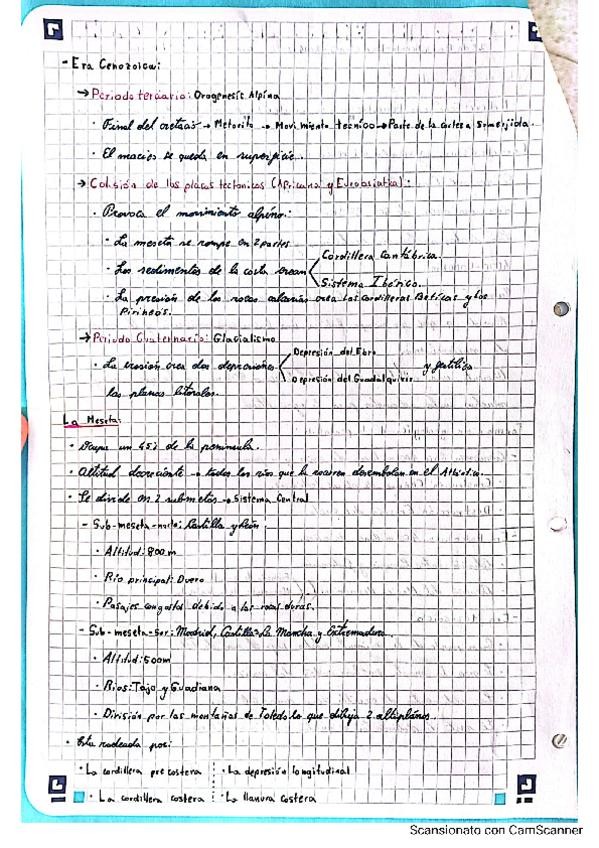 - Era Cenozoica:
→ Periodo terciario: Orogenesis Alpina
· Final del cretacio → Metorito → Movimiento tecnico → Parte de la corteza sumerjida.
· El macizo se queda en superficie.
→ Colisión de las placas tectonicas (Africana y Euroasiatica):
· Provoca el movimiento alpino:
· La meseta se rompe en 2 partes
· Los sedimentos de la costa crean Cordillera Cantábrica.
Sistema Ibérico.
· La presión de las rocas calcarias crea las Cordilleras Beticas y los
Pirineos.
→ Periodo Cuaternario: Glacialismo
· La erosión crea dos depresiones Depresión del Ebro y
Depresión del Guadalquivir
las planas litorales.
La Meseta:
· Ocupa un 45% de la peninsula.
· Altitud decreciente → todos los rios que la recorren desembocan en el Atlántico.
· Se divide en 2 submetas → Sistema Central
- Sub-meseta-norte: Castilla y León.
· Altitud: 800 m
· Rio principal: Duero
· Pasajes congostos debido a las rocas duras.
- Sub-meseta-sur: Madrid, Castilla-La Mancha y Extremadura.
· Altitud: 500m
· Rios: Tajo y Guadiana
· División por las montañas de Toledo lo que dibuja 2 altiplános.
· Esta rodeada por:
· La cordillera precostera · La depresión longitudinal
· La cordillera costera · La llanura costera
Scansionato con CamScanner